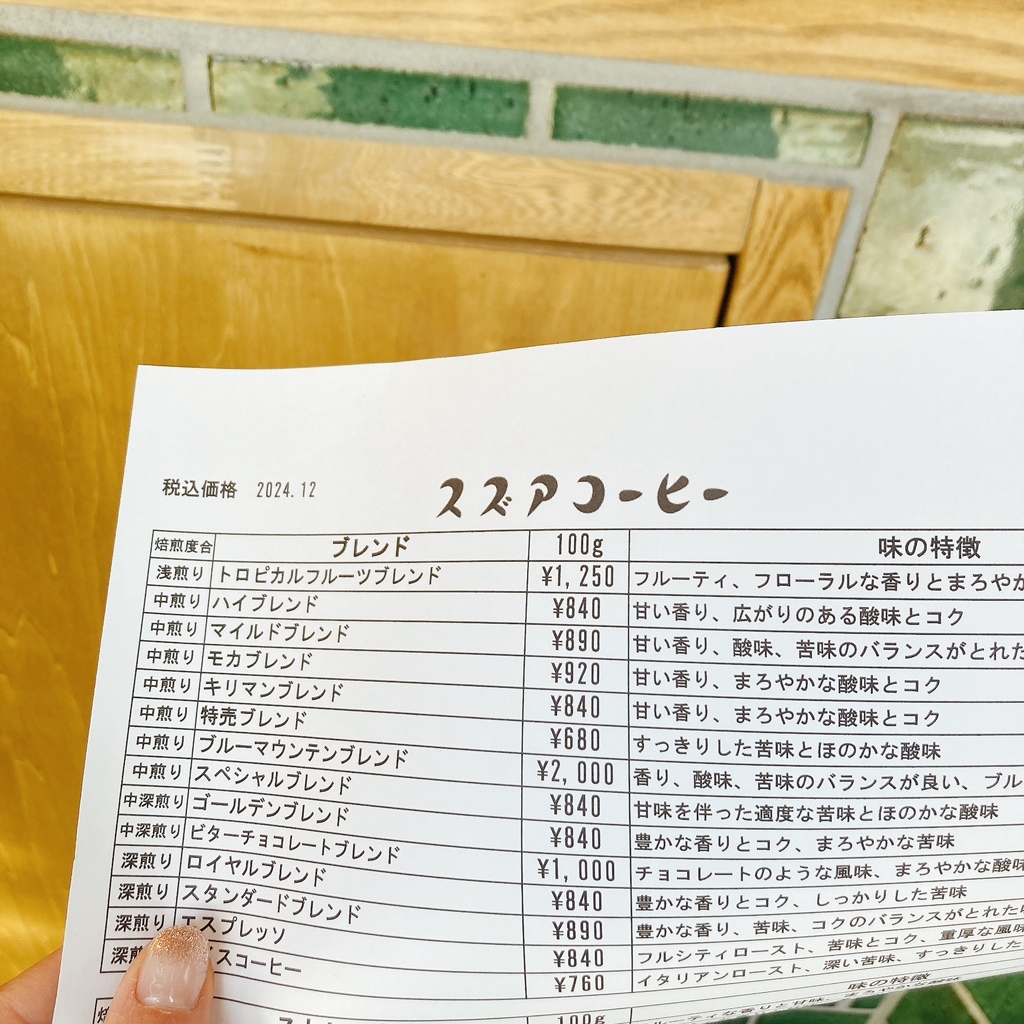 税込価格 2024.12 スズアコーヒー
焙煎度合 ブレンド 100g 味の特徴
浅煎り トロピカルフルーツブレンド ¥1,250 フルーティ、フローラルな香りとまろやか
中煎り ハイブレンド ¥840 甘い香り、広がりのある酸味とコク
中煎り マイルドブレンド ¥890 甘い香り、酸味、苦味のバランスがとれた
中煎り モカブレンド ¥920 甘い香り、まろやかな酸味とコク
中煎り キリマンブレンド ¥840 甘い香り、まろやかな酸味とコク
中煎り 特売ブレンド ¥680 すっきりした苦味とほのかな酸味
中煎り ブルーマウンテンブレンド ¥2,000 香り、酸味、苦味のバランスが良い、ブル
中煎り スペシャルブレンド ¥840 甘味を伴った適度な苦味とほのかな酸味
中深煎り ゴールデンブレンド ¥840 豊かな香りとコク、まろやかな苦味
中深煎り ビターチョコレートブレンド ¥1,000 チョコレートのような風味、まろやかな酸味
深煎り ロイヤルブレンド ¥840 豊かな香りとコク、しっかりした苦味
深煎り スタンダードブレンド ¥890 豊かな香り、苦味、コクのバランスがとれた
深煎り エスプレッソ ¥840 フルシティロースト、苦味とコク、重厚な風味
深煎 スコーヒー ¥760 イタリアンロースト、深い苦味、すっきりした
100g 味の特徴